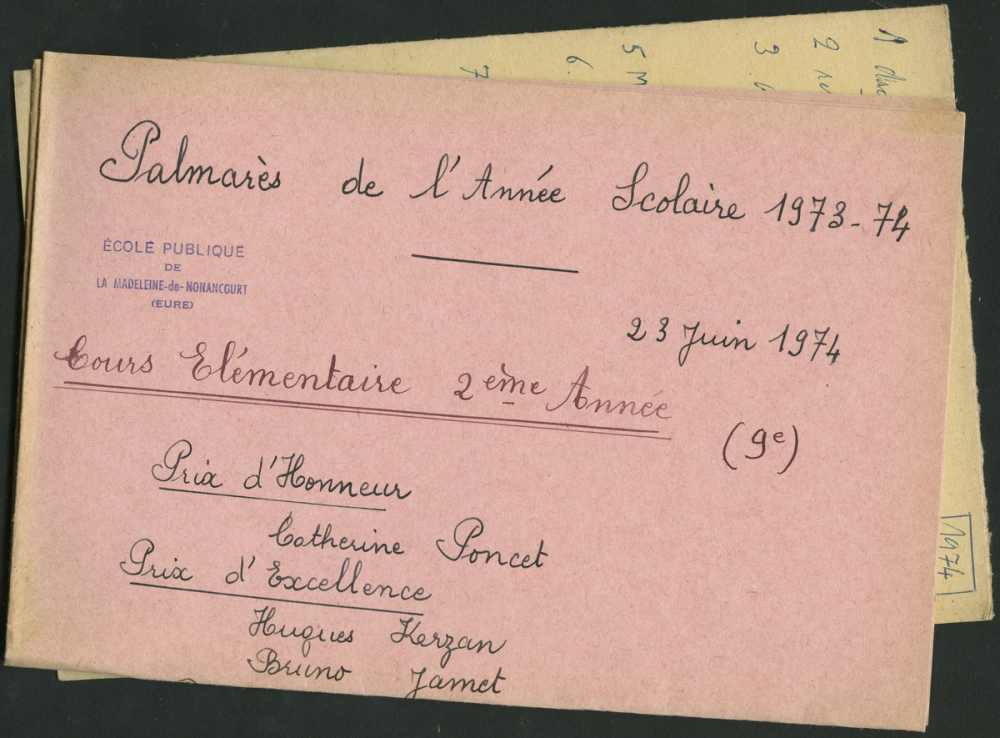 1 disc
2 re
3.
5 M
6.
7
Palmarès de l'Année Scolaire 1973-74
ÉCOLE PUBLIQUE
DE
LA MADELEINE-de-NONANCOURT
(EURE)
23 Juin 1974
Cours Elémentaire 2ème Année
(9e)
Prix d'Honneur
Catherine Poncet
Prix d'Excellence
Hugues Kerzan
Bruno Jamet
1974